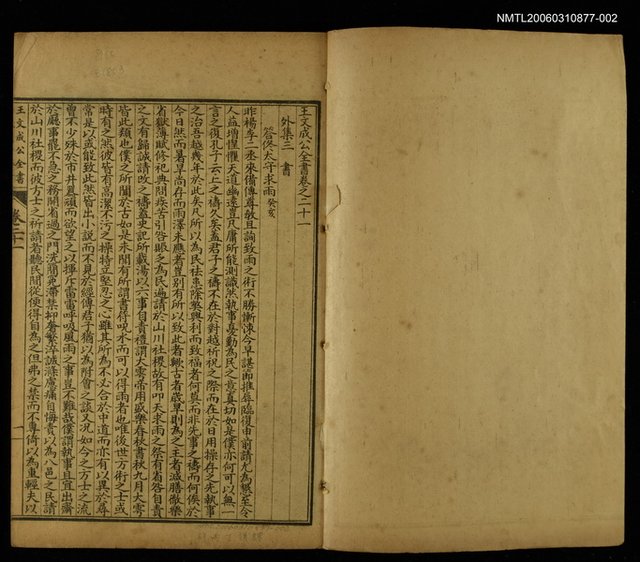 NMTL20060310877-002
王文成公全書卷之二十一
外集三 書
答佟太守求雨 癸亥
昨楊李二丞來備傳尊教且詢致雨之術不勝慚悚今早諶節推辱臨復申前請尤為懇至令
人益增惶懼天道幽遠豈凡庸所能測識然執事憂勤為民之意真切如是僕亦何可以無一
言之復孔子云丘之禱久矣蓋君子之禱不在於對越祈祝之際而在於日用操存之先執事
之治吾越幾年於此矣凡所以為民祛患除弊興利而致福者何莫而非先事之禱而何俟於
今日然而暑旱尚存而雨澤未應者豈別有所以致此者歟古者歲旱則為之主者減膳撤樂
省獄薄賦修祀典問疾苦引咎賑乏為民遍請於山川社稷故有叩天求雨之祭有省咎自責
之文有歸誠請改之禱蓋史記所載湯以六事自責禮謂大雩帝用盛樂春秋書秋九月大雩
皆此類也僕之所聞於古如是未聞有所謂書符咒水而可以得雨者也唯後世方術之士或
時有之然彼皆有高潔不污之操特立堅忍之心雖其所為不必合於中道而亦有以異於尋
常是以或能致此然皆出小說而不見於經傳君子猶以為附會之談又況如今之方士之流
曾不少殊於市井囂頑而欲望之以揮斥雷電呼吸風雨之事豈不難哉僕謂執事且宜出齋
於廳事罷不急之務開省過之門洗簡冤滯禁抑奢繁淬誠滌慮痛自悔責以為八邑之民請
於山川社稷而彼方士之祈請者聽民間從便得自為之但弗之禁而不專倚以為重輕夫以
王文成公全書 卷二十一 一